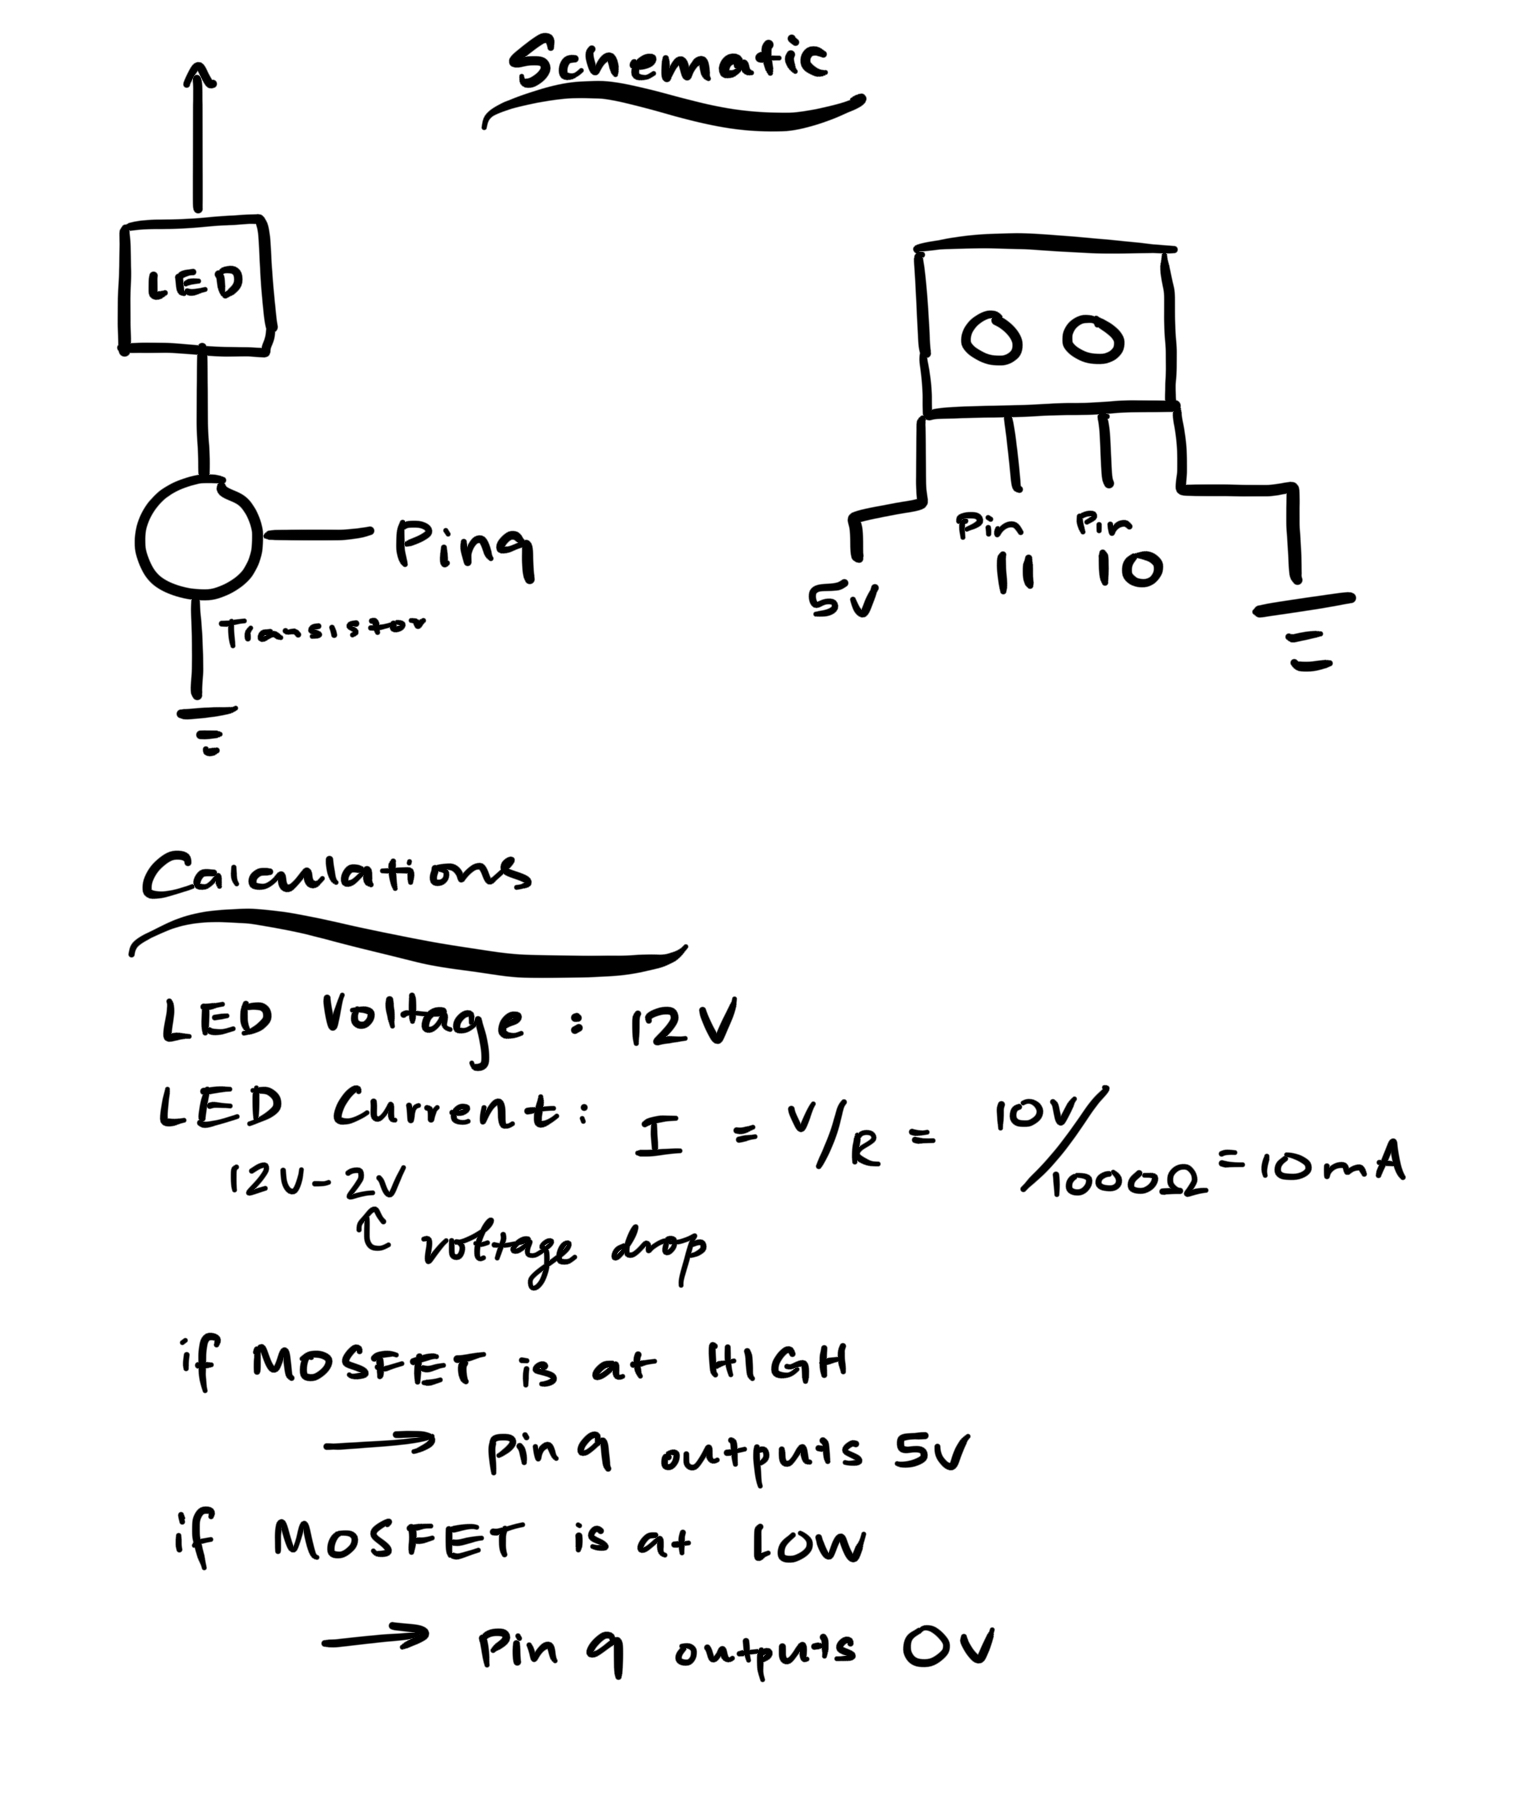 Schematic
LED
Pin 9
Transistor
Pin Pin
11 10
5V
Calculations
LED Voltage : 12V
LED Current: I = V/R = 10V/1000Ω = 10mA
12V-2V
↑ voltage drop
if MOSFET is at HIGH
→ Pin 9 outputs 5V
if MOSFET is at LOW
→ Pin 9 outputs 0V